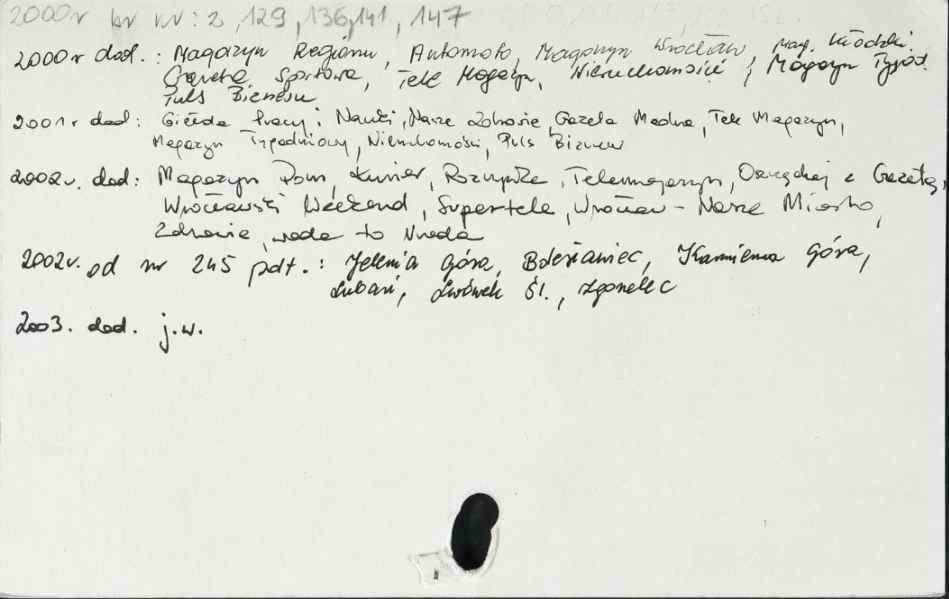 2000r br nr: 2, 129, 136, 141, 147
2000r dod.: Magazyn Regionu, Automoto, Magazyn Wrocław, Mag. Kłodzki
Gazeta Sportowa, Tele Magazyn, Nieruchomości, Magazyn Tygod.
Puls Biznesu
2001r dod: Giełda Pracy i Nauki, Nasze Zdrowie, Gazeta Modna, Tele Magazyn,
Magazyn Tygodniowy, Nieruchomości, Puls Biznesu
2002r. dod: Magazyn Dom, Kurier, Rozrywka, Telemagazyn, Oszczędzaj z Gazetą,
Wrocławski Weekend, Supertele, Wrocław - Nasze Miasto,
Zdrowie, woda to
2002r. od nr 245 pdt.: Jelenia Góra, Bolesławiec, Kamienna Góra,
Lubań, Lwówek Śl., Zgorzelec
2003. dod. j.w.